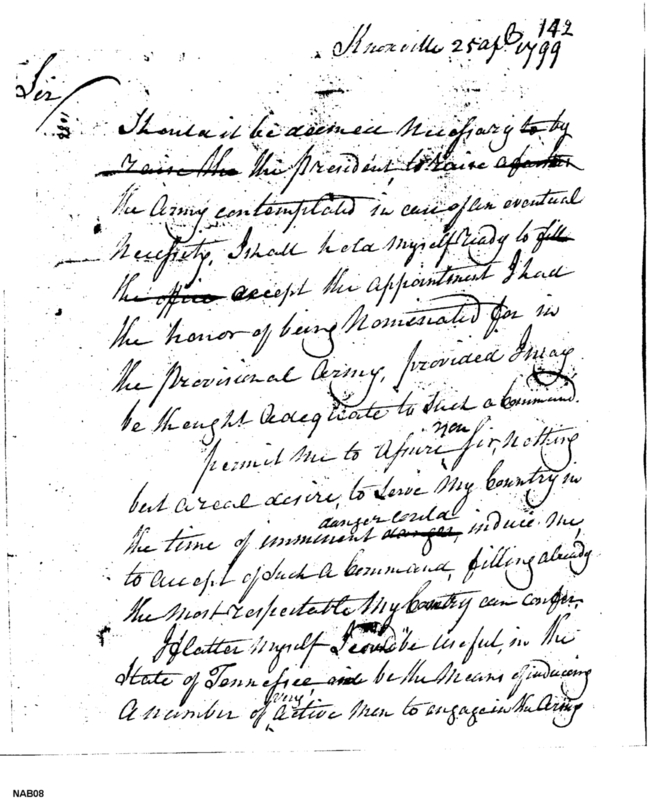 142
Knoxville 25 apl 1799
Sir
Should it be deemed Necessary to by
raise the the President, to raise
the Army contemplated in case of an eventual
Necessity, I shall hold myself ready to fill
the office accept the appointment I had
the honor of being Nominated for in
the Provisional Army, provided I may
be thought Adequate to Such a Command.
permit me to assure you Sir, Nothing
but a real desire, to Serve My Country in
danger could
the time of imminent danger, induce me,
to accept of Such a Command, filling already
the most respectable My Country can confer,
I flatter myself I could be useful, in the
State of Tennessee and be the Means of inducing
very
A number of active Men to engage in the Army
NAB08